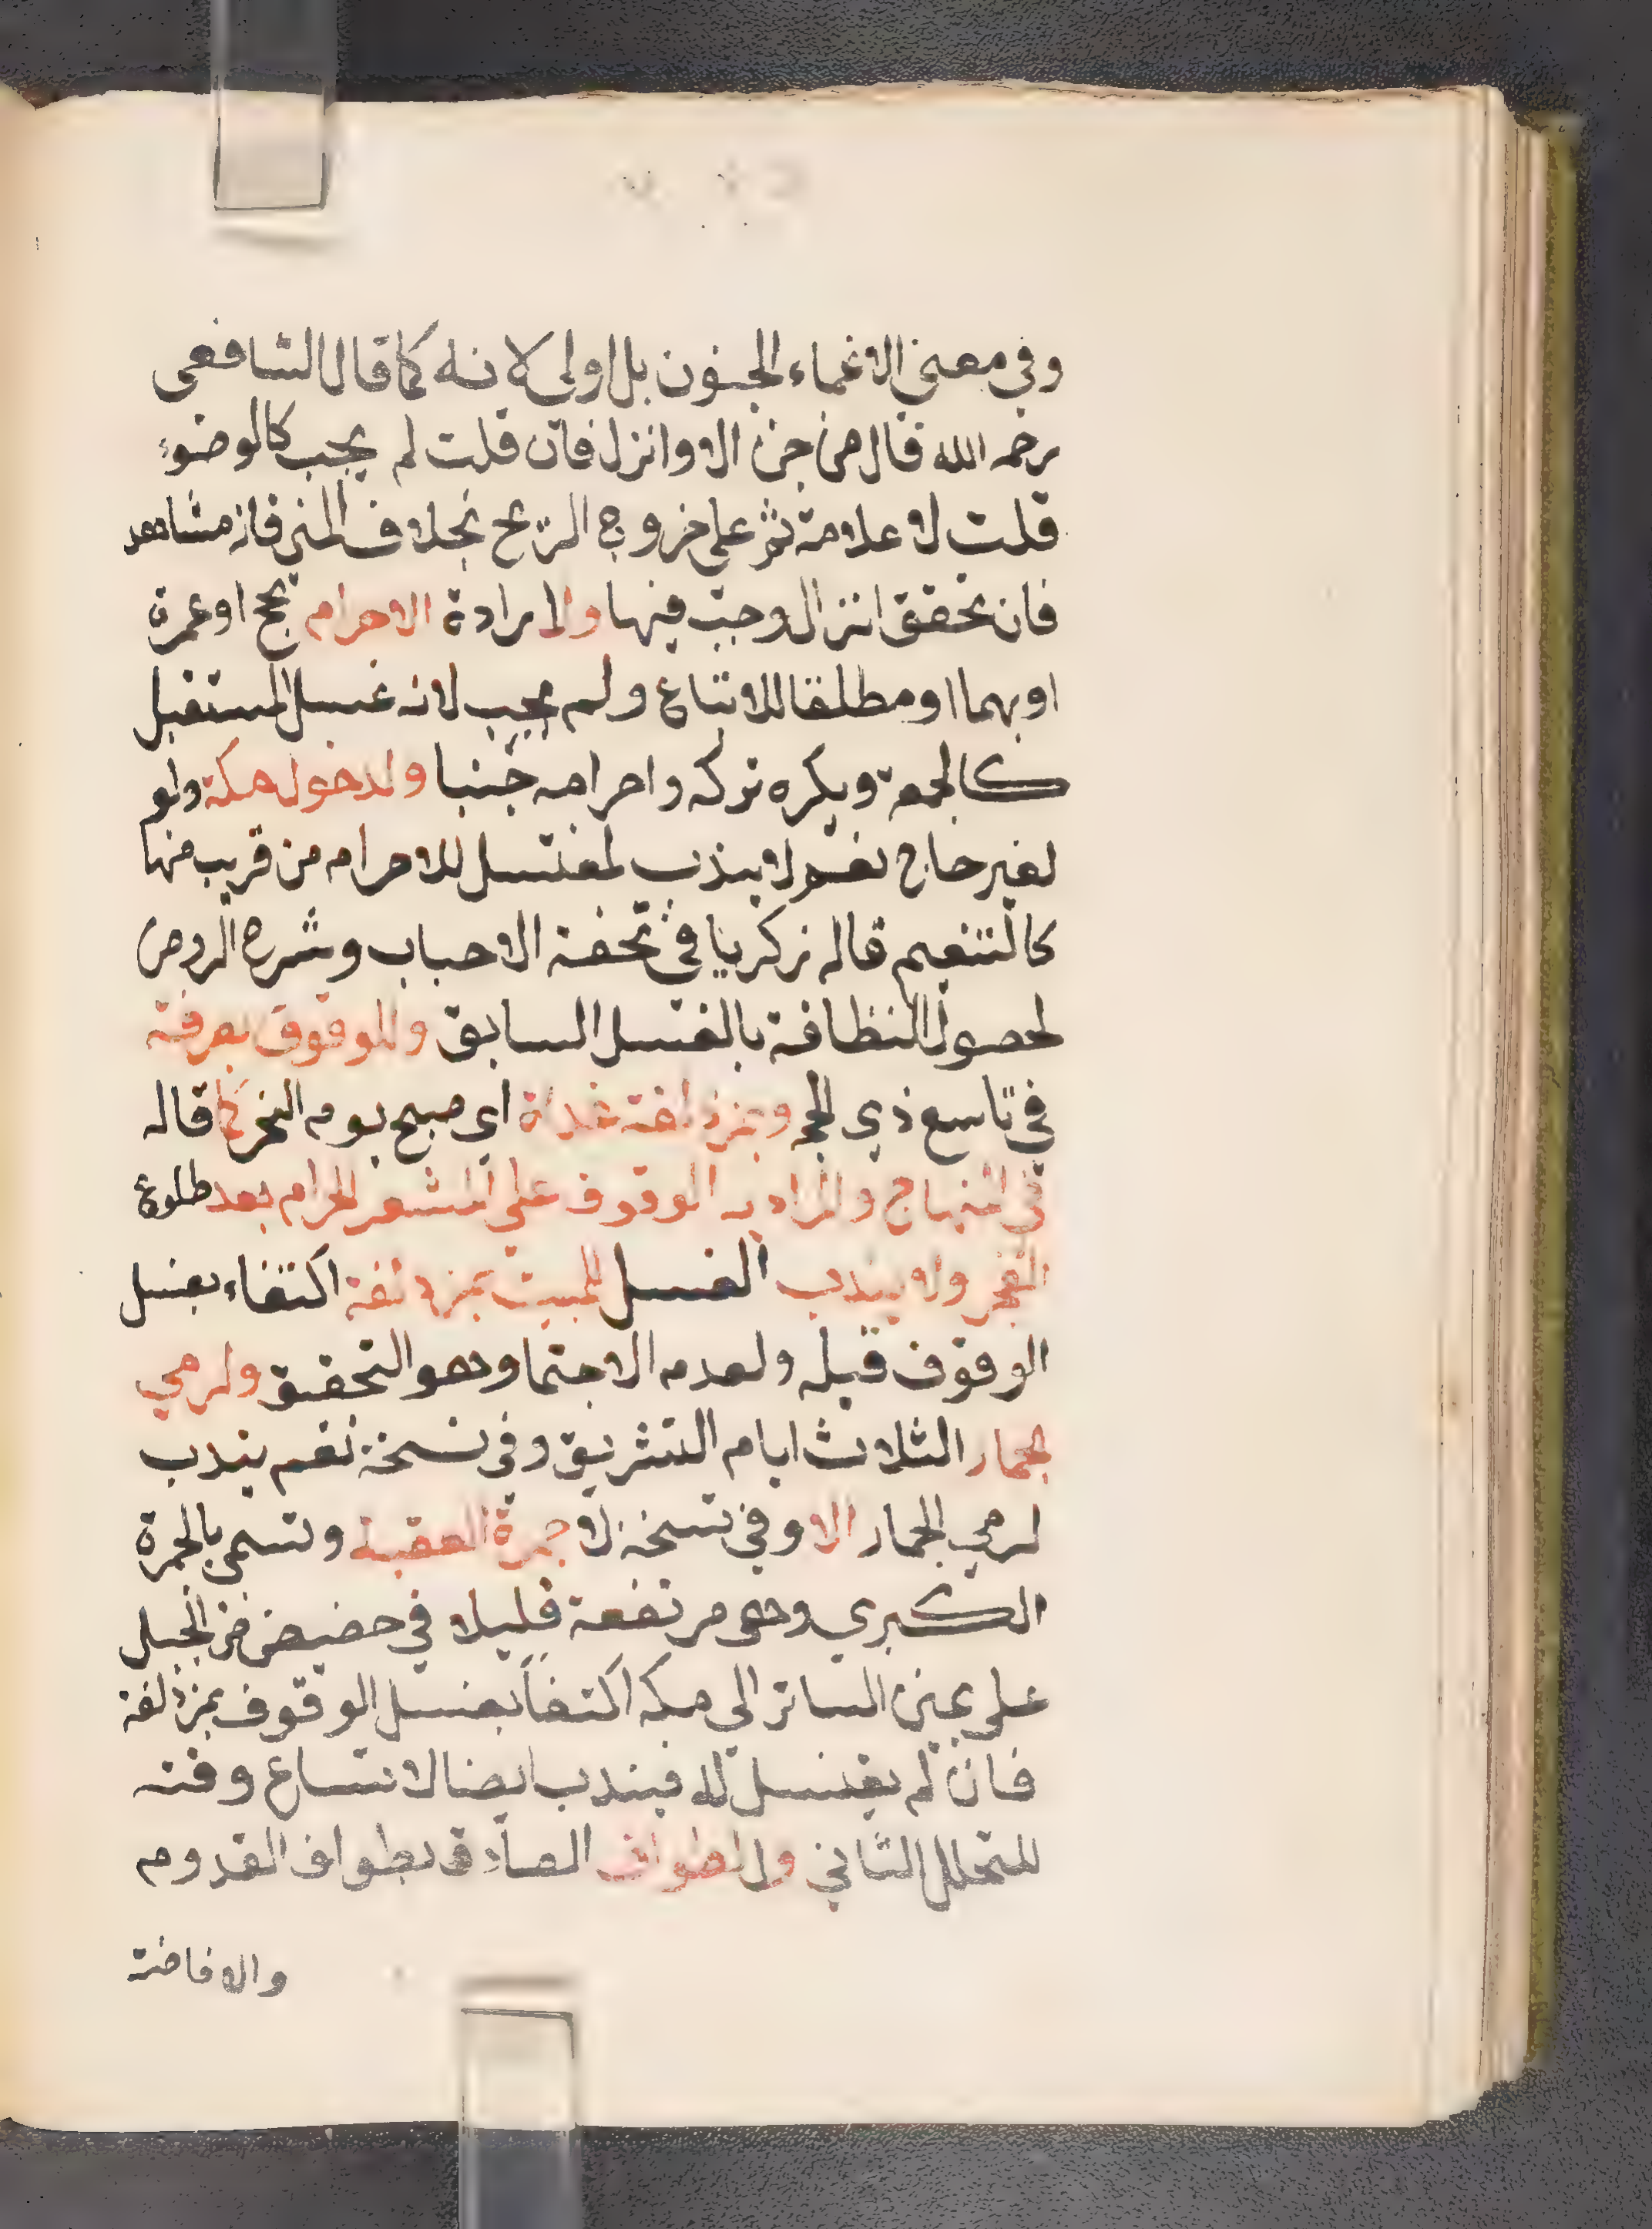 وفي معنى الاغماء الجنون بل اولى لانه كما قال الشافعى
رحمه الله قال من جن الا وانزل فان قلت لم يجب كالوضوء
قلت لا علامة ثم على خروج الريح بخلاف المني فانه مشاهد
فان تحقق انزال وجب فيها ولارادة الاحرام بحج او عمرة
او بهما او مطلقا للاتباع ولم يجب لانه غسل المستقبل
كالجمعة ويكره تركه واحرامه جنبا ولدخول مكة ولو
لغير حاج نعم لا يندب لمغتسل للاحرام من قريب منها
كالتنعيم قاله زكريا في تحفة الاحباب وشرح الروض
لحصول النظافة بالغسل السابق وللوقوف بعرفة
في تاسع ذي الحجه وبمزدلفة غداة اي صبح يوم النحر كما قاله
في المنهاج والمراد به الوقوف على المشعر الحرام بعد طلوع
الفجر ولا يندب الغسل للمبيت بمزدلفة اكتفاء بغسل
الوقوف قبله ولعدم الاجتما وهو التحقيق ولرمي
الجمار الثلاث ايام التشريق وفي نسخة نعم يندب
لرمي الجمار الا وفي نسخة لا جمرة العقبة وتسمى بالجمرة
الكبري وهى مرتفعة قليلا في حضيض من الجبل
على يمين السائر الي مكه اكتفاً بغسل الوقوف بمزدلفة
فان لم يغتسل له فيندب ايضا لاتساع وقته
للتحلل الثاني وللطواف الصادق بطواف القدوم
والافاضة